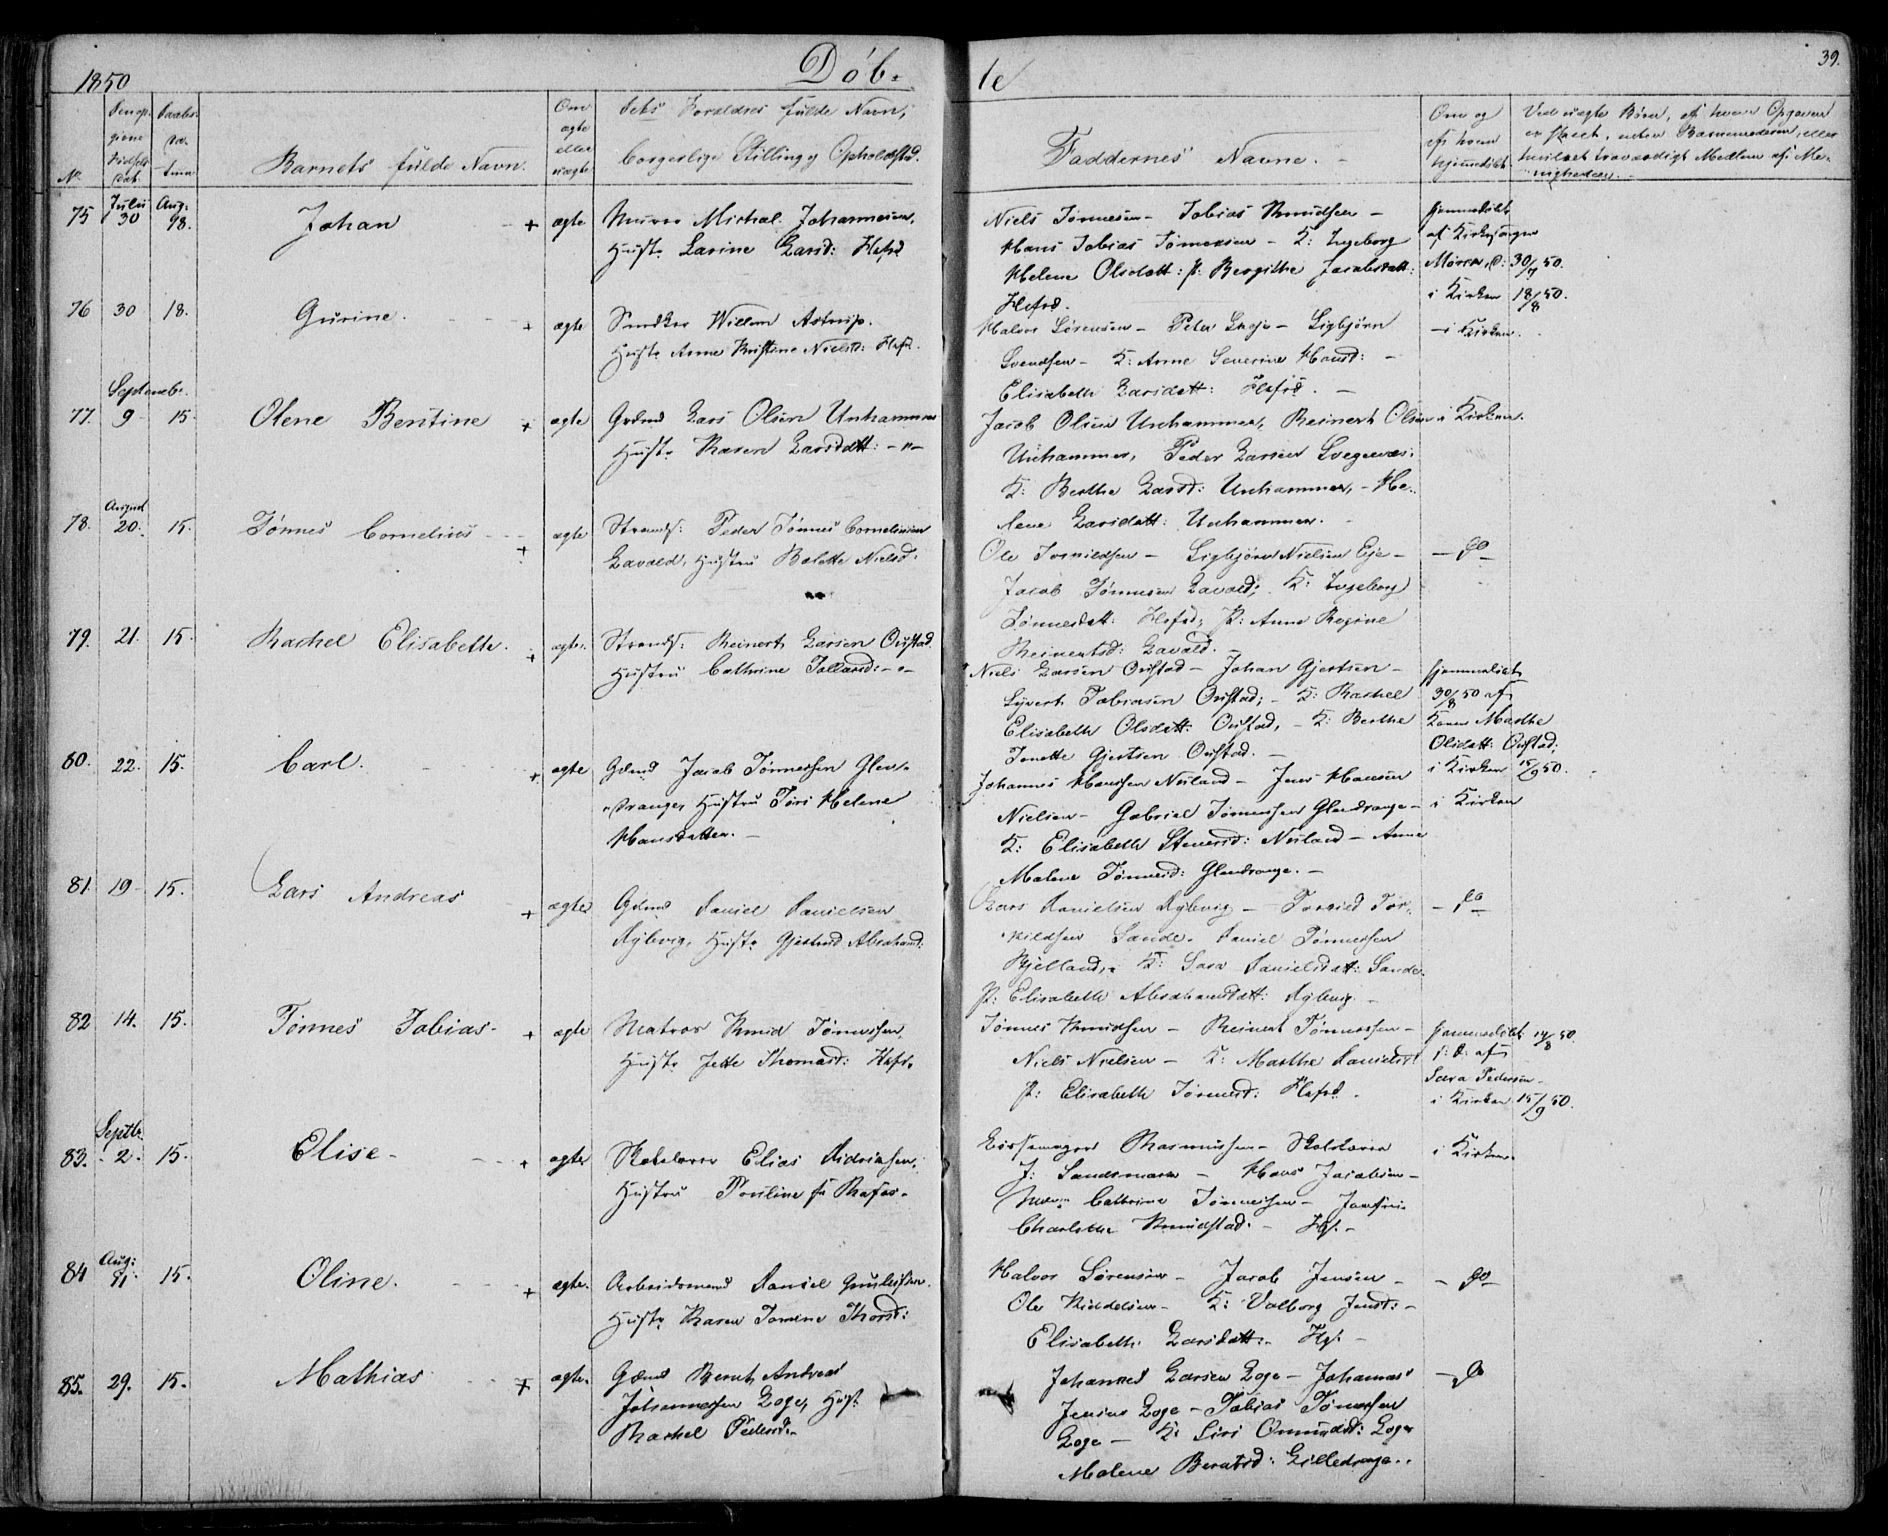 1850 Døb-
te 39.
No
Barnets fulde Navn.
Om ægte eller uægte
Foreldres fulde Navn,
borgerlige Stilling og Opholdsted.
Faddernes Navne.
Om og af hvem hjemmedøbt
Ved uægte Børn, af hvem Opgaven
er skeet, enten Barnemoderen, eller
hvilket troværdigt Medlem af Me-
nigheden.
75 Julii 30 Aug: 18. Johan + ægte
Murer Michal Johannesen,
Hustr Larsd: Flefd
Niels Tønnesen - Tobias Knudsen -
Hans Tobias Tønnesen - K: Ingeborg
Helene Olsdatt: P: Bergithe Jacobsdatt:
Flefd.
hjemmedøbt
af Kirkesanger
30/7 50.
i Kirken 18/8 50.
76 30 18. Gurine. + ægte
Snedker Willem Astrup.
Hustr Anne Kristine Nielsd: Flefd.
Halvor Sørensen - Peter - Sigbjørn
Svendsen - K: Anne Severine Hansd: -
Elisabeth Larsdatt: Flefd. -
- i Kirken.
Septembr.
77. 9 15. Olene Bentine + ægte
Grdmd Lars Olsen Unhammer
Hustr Karen Larsdatt: - " -
Jacob Olsen Unhammer, Reinert Olsen
Unhammer, Peder Larsen
K: Berthe Larsd: Unhammer, - He-
lene Larsdatt: Unhammer. -
i Kirken.
August
78. 20. 15. Tønnes Cornelius + ægte
Strands: Peder Tønnes Cornelius
Lavold, Hustru Bolette Nielsd:
Ole - Sigbjørn Nielsen Eje -
Jacob Tønnesen Lavold; K: Ingeborg
Tønnesdatt: Flefd; P: Anne Regine
Reinertsd: Lavold. -
- do -
79. 21. 15. Rachel Elisabeth. + ægte.
Strands: Reinert Larsen Østad
Hustru Cathrine Tollaksd: - " -
Niels Larsen Østad - Johan Gjertsen -
Syvert Tobiasen Østad; - K: Rachel
Elisabeth Olsdatt: Østad, - K: Berthe
Jonette Gjertsen Østad. -
hjemmedøbt
30/8 50 af
Konen Marthe
Olsdatt: Østad;
i Kirken 15/9 50.
80. 22. 15. Carl. + ægte
Gdmd Jacob Tønnessen Glen-
drange, Hustru Siri Helene
Hansdatter. -
Johannes Hanssen Neuland - Jens Hansen
Nielsen - Gabriel Tønnessen Glendrange -
K: Elisabeth Neuland - Anne
Malene Tønnesd: Glendrange. -
i Kirken
81. 19 15. Lars Andreas + ægte
Gdmd Daniel Danielsen
Rygbvig, Hustr Gjertrud Abrahamsd:
Lars Danielsen - Tor-
kildsen Sande. Daniel Tønnessen
Kjelland, - K: Sara Danielsdatt: Sande.
P: Elisabeth Abrahamsdatt: -
- do -
82 14. 15. Tønnes Tobias - + ægte
Matros Knud Tønnessen,
Hustr Jette Thomasd: Flefd.
Tønnes Knudsen - Reinert Tønnessen -
Niels Nielsen - K: Marthe Danielsd:
P: Elisabeth Tønnesd: Flefd.
hjemmedøbt 14/8 50.
af
Sara Pedersen -
i Kirken 15/9 50.
Septbr.
83. 2. 15. Elise - + ægte
Skolelærer Elias Didriksen,
Hustru Pouline
Rasmussen - Skolelærer
J: Sandsmark - Hans Jacobsen -
Cathrine Tønnessen -
Charlotte Knudstad. - Flf. -
i Kirken.
Aug:
84 11. 15. Oline. + ægte.
Arbeidsmand Daniel
Hustr Karen Thorsd:
Halvor Sørensen - Jacob Jensen -
Ole - K: Valborg Jensd: -
Elisabeth Larsdatt: Flf. -
- do -
85. 29. 15. Mathias + ægte.
Gdmd Bernt Andreas
Johannessen Loge, Hustr
Rachel Pedersd.
Johannes Larsen Loge - Johannes
Jensen Loge - Tobias Tønnessen
Loge - K: Siri Loge
Malene Berntsd:
- do